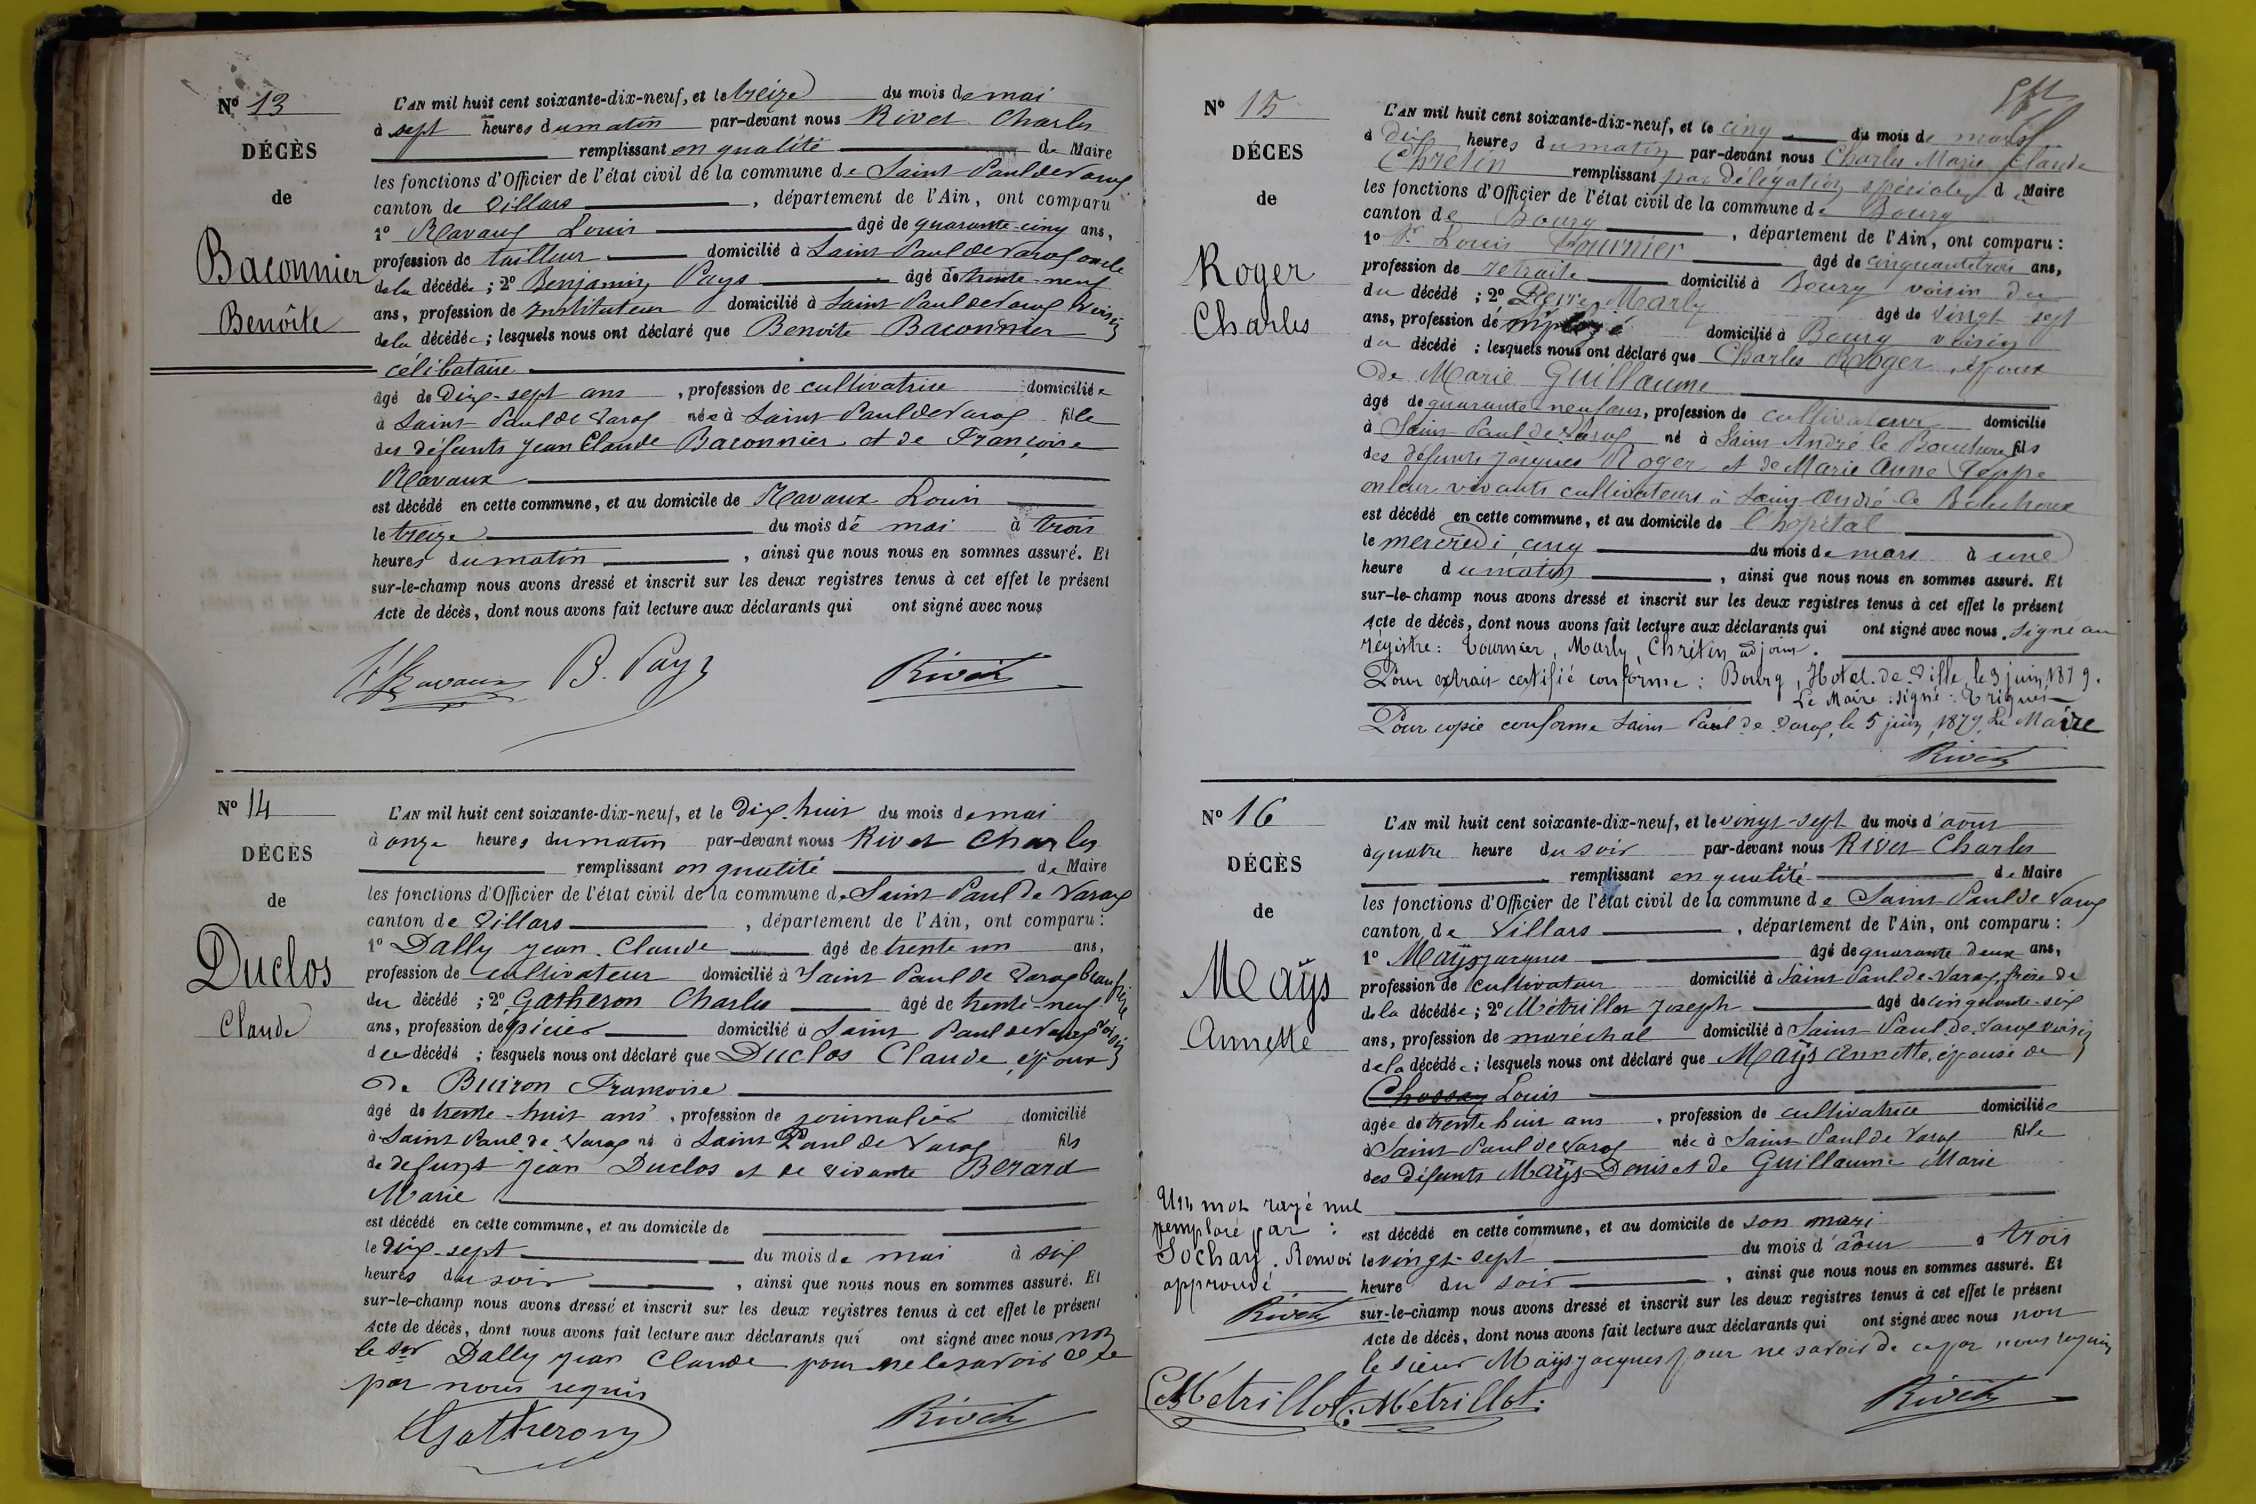 Nº 13
DÉCÈS
de
Baconnier
Benoîte
L'AN mil huit cent soixante-dix-neuf, et le treize du mois de mai
à sept heures du matin par-devant nous Rivet Charles
remplissant en qualité de Maire
les fonctions d'Officier de l'état civil de la commune de Saint Paul de Varax
canton de Villars, département de l'Ain, ont comparu
1º Ravaux Louis âgé de quarante-cinq ans,
profession de tailleur domicilié à Saint Paul de Varax oncle
de la décédée ; 2º Benjamin Pays âgé de trente-neuf
ans, profession de instituteur domicilié à Saint Paul de Varax voisin
de la décédée ; lesquels nous ont déclaré que Benoîte Baconnier
célibataire
âgé de dix-sept ans, profession de cultivatrice domiciliée
à Saint Paul de Varax née à Saint Paul de Varax fille
des défunts Jean Claude Baconnier et de Françoise
Ravaux
est décédé en cette commune, et au domicile de Ravaux Louis
le treize du mois de mai à trois
heures du matin, ainsi que nous nous en sommes assuré. Et
sur-le-champ nous avons dressé et inscrit sur les deux registres tenus à cet effet le présent
Acte de décès, dont nous avons fait lecture aux déclarants qui ont signé avec nous
Ravaux B. Pays Rivet
Nº 14
DÉCÈS
de
Duclos
Claude
L'AN mil huit cent soixante-dix-neuf, et le dix-huit du mois de mai
à onze heures du matin par-devant nous Rivet Charles
remplissant en qualité de Maire
les fonctions d'Officier de l'état civil de la commune de Saint Paul de Varax
canton de Villars, département de l'Ain, ont comparu :
1º Dally Jean Claude âgé de trente un ans,
profession de cultivateur domicilié à Saint Paul de Varax beau frère
du décédé ; 2º Gatheron Charles âgé de trente-neuf
ans, profession de épicier domicilié à Saint Paul de Varax voisin
du décédé ; lesquels nous ont déclaré que Duclos Claude, époux
de Buiron Françoise
âgé de trente-huit ans, profession de journalier domicilié
à Saint Paul de Varax né à Saint Paul de Varax fils
de defunt Jean Duclos et de vivante Berard
Marie
est décédé en cette commune, et au domicile de
le dix-sept du mois de mai à six
heures du soir, ainsi que nous nous en sommes assuré. Et
sur-le-champ nous avons dressé et inscrit sur les deux registres tenus à cet effet le présent
Acte de décès, dont nous avons fait lecture aux déclarants qui ont signé avec nous non
le sr Dally Jean Claude pour ne le savoir de ce
par nous requis
Gatheron Rivet
Nº 15
DÉCES
de
Roger
Charles
L'AN mil huit cent soixante-dix-neuf, et le cinq du mois de mars
à dix heures du matin par-devant nous Charles Marie Claude
Chrétin remplissant par délégation spéciale du Maire
les fonctions d'Officier de l'état civil de la commune de Bourg
canton de Bourg, département de l'Ain, ont comparu :
1º Sr Louis Tournier âgé de cinquante trois ans,
profession de retraité domicilié à Bourg voisin du
du décédé ; 2º Pierre Marly âgé de vingt sept
ans, profession de employé domicilié à Bourg voisin
du décédé ; lesquels nous ont déclaré que Charles Roger, époux
de Marie Guillaume
âgé de quarante-neuf ans, profession de cultivateur domicilié
à Saint Paul de Varax né à Saint André le Bouchoux fils
des défunts Jacques Roger et de Marie Anne Teppe
en leur vivants cultivateurs à Saint André le Bouchoux
est décédé en cette commune, et au domicile de l'hôpital
le mercredi cinq du mois de mars à une
heure du matin, ainsi que nous nous en sommes assuré. Et
sur-le-champ nous avons dressé et inscrit sur les deux registres tenus à cet effet le présent
Acte de décès, dont nous avons fait lecture aux déclarants qui ont signé avec nous. Signé au
régistre : Tournier, Marly, Chrétin adjoint.
Pour extrait certifié conforme : Bourg, Hotel-de-Ville, le 3 juin 1879.
Le Maire : signé :
Pour copie conforme Saint Paul de Varax, le 5 juin 1879, Le Maire
Rivet
Nº 16
DÉCÈS
de
Maÿs
Annette
L'AN mil huit cent soixante-dix-neuf, et le vingt-sept du mois d'août
à quatre heure du soir par-devant nous Rivet Charles
remplissant en qualité de Maire
les fonctions d'Officier de l'état civil de la commune de Saint Paul de Varax
canton de Villars, département de l'Ain, ont comparu :
1º Maÿs Jacques âgé de quarante deux ans,
profession de cultivateur domicilié à Saint Paul de Varax, frère de
de la décédée ; 2º Métrillot Joseph âgé de cinquante-six
ans, profession de maréchal domicilié à Saint Paul de Varax voisin
de la décédée ; lesquels nous ont déclaré que Maÿs Annette, épouse de
Chossay Louis
âgée de trente huit ans, profession de cultivatrice domiciliée
à Saint Paul de Varax née à Saint Paul de Varax fille
des défunts Maÿs Denis et de Guillaume Marie
est décédé en cette commune, et au domicile de son mari
le vingt-sept du mois d'août à trois
heure du soir, ainsi que nous nous en sommes assuré. Et
sur-le-champ nous avons dressé et inscrit sur les deux registres tenus à cet effet le présent
Acte de décès, dont nous avons fait lecture aux déclarants qui ont signé avec nous non
le sieur Maÿs Jacques pour ne savoir de ce par nous requis
Un mot rayé nul
remplacé par :
Sochay. Renvoi
approuvé
Rivet
Métrillot Métrillot Rivet